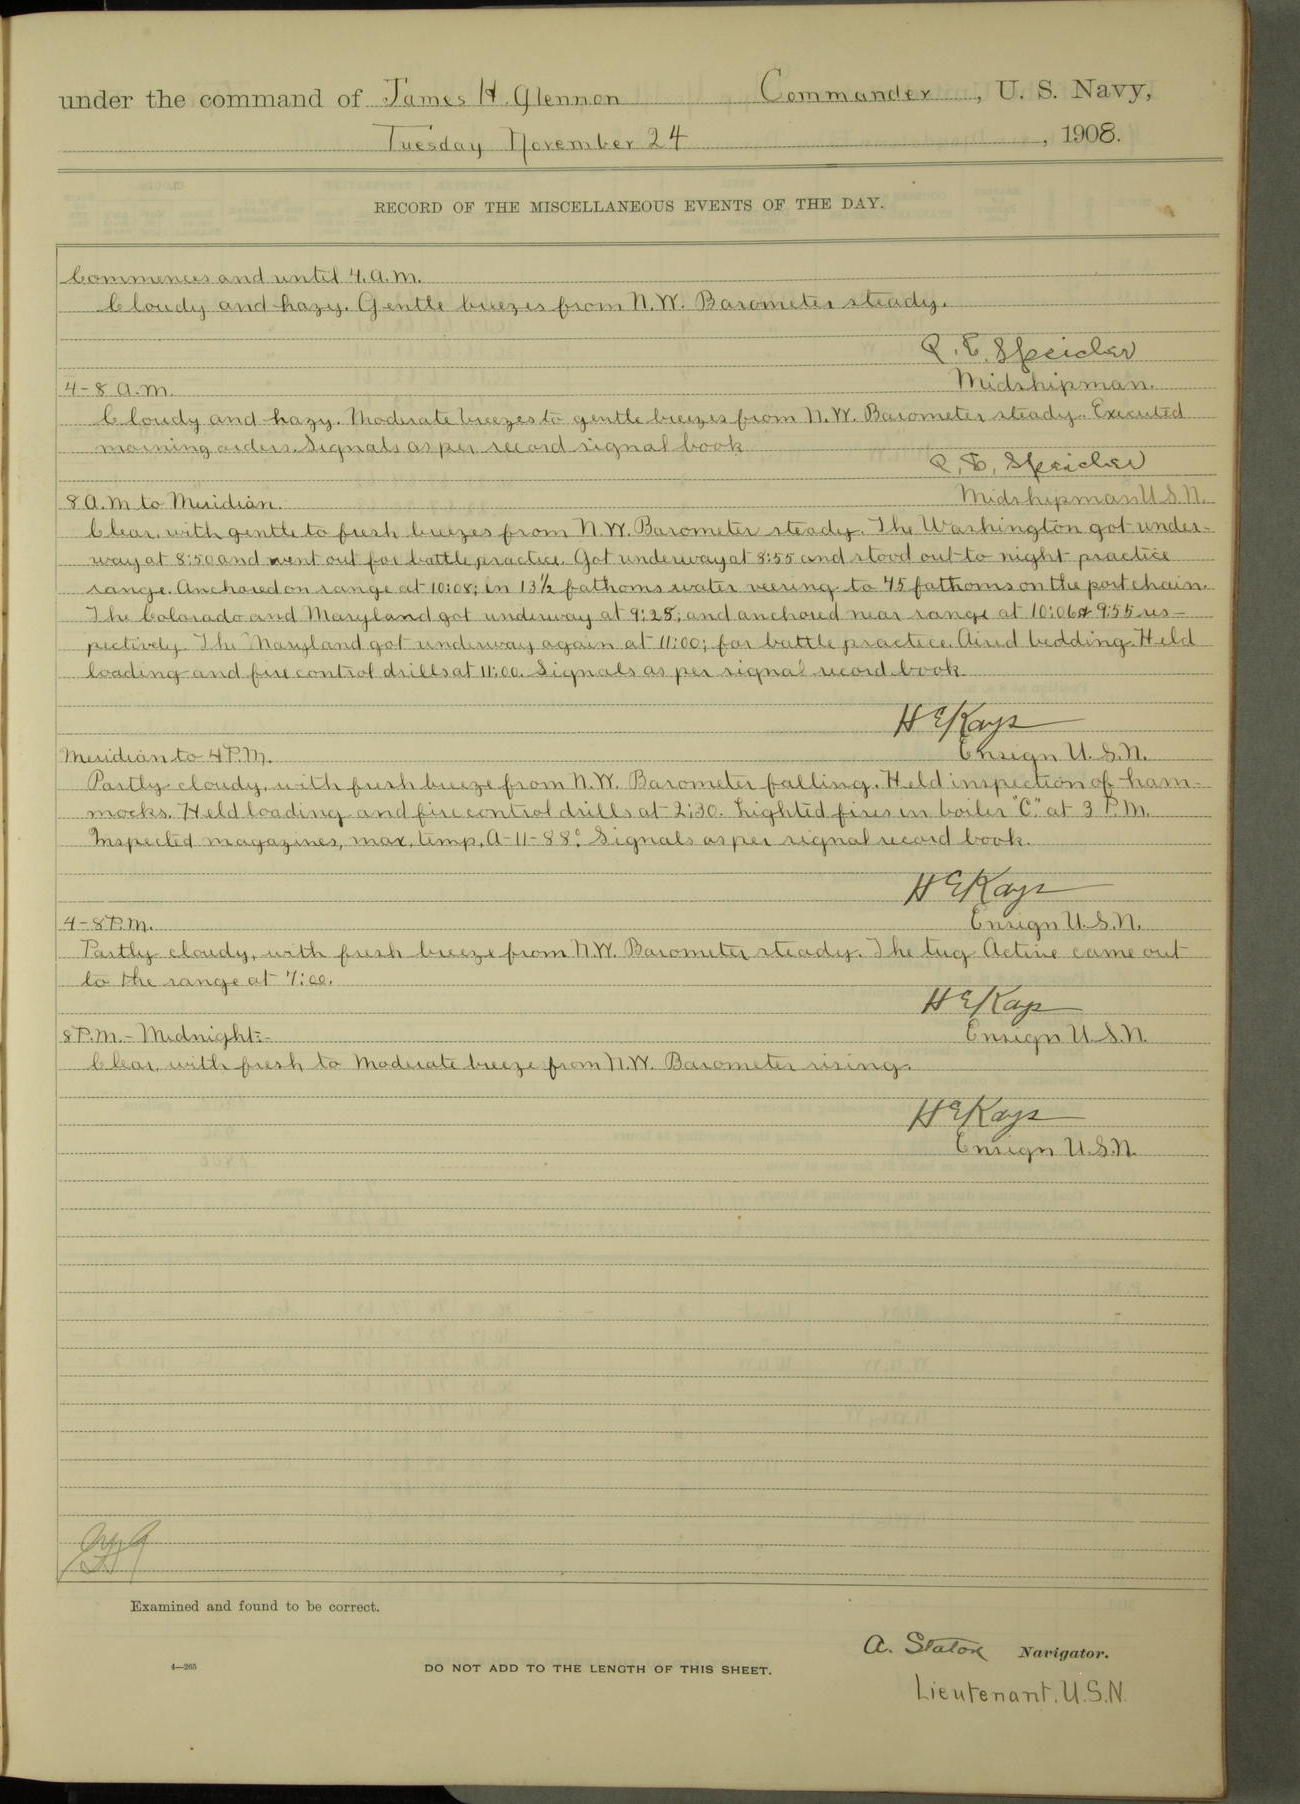 under the command of James H. Glennon Commander, U. S. Navy,
Tuesday November 24, 1908.
RECORD OF THE MISCELLANEOUS EVENTS OF THE DAY.
Commences and until 4. a.m.
Cloudy and hazy. Gentle breezes from N.W. Barometer steady.
R. E. Speicher
4-8 a.m. Midshipman.
Cloudy and hazy. Moderate breezes to gentle breezes from N.W. Barometer steady. Executed
morning orders. Signals as per record signal book
Speicher
8 a.m to Meridian. Midshipman U.S.N.
Clear, with gentle to fresh breezes from N.W. Barometer steady. The Washington got under-
way at 8:50 and went out for battle practice. Got underway at 8:55 and stood out to night practice
range. Anchored on range at 10:08; in 13½ fathoms water veering to 45 fathoms on the port chain.
The Colorado and Maryland got underway at 9:28; and anchored near range at 10:06 & 9:55 res-
pectively. The Maryland got underway again at 11:00; for battle practice. Aired bedding. Held
loading and fire control drills at 11:00. Signals as per signal record book.
H E Kays
Meridian to 4 P.M. Ensign U.S.N.
Partly cloudy, with fresh breeze from N.W. Barometer falling. Held inspection of ham-
mocks. Held loading and fire control drills at 2:30. Lighted fires in boiler "C" at 3 P.M.
Inspected magazines, max. temp. A-11-88°. Signals as per signal record book.
H E Kays
4-8 P.M. Ensign U.S.N.
Partly cloudy, with fresh breeze from N.W. Barometer steady. The tug Active came out
to the range at 7:00.
H E Kays
8 P.M.- Midnight:- Ensign U.S.N.
Clear, with fresh to moderate breeze from N.W. Barometer rising.
H E Kays
Ensign U.S.N.
Examined and found to be correct.
A. Staton Navigator.
4—265 DO NOT ADD TO THE LENGTH OF THIS SHEET.
Lieutenant. U.S.N.